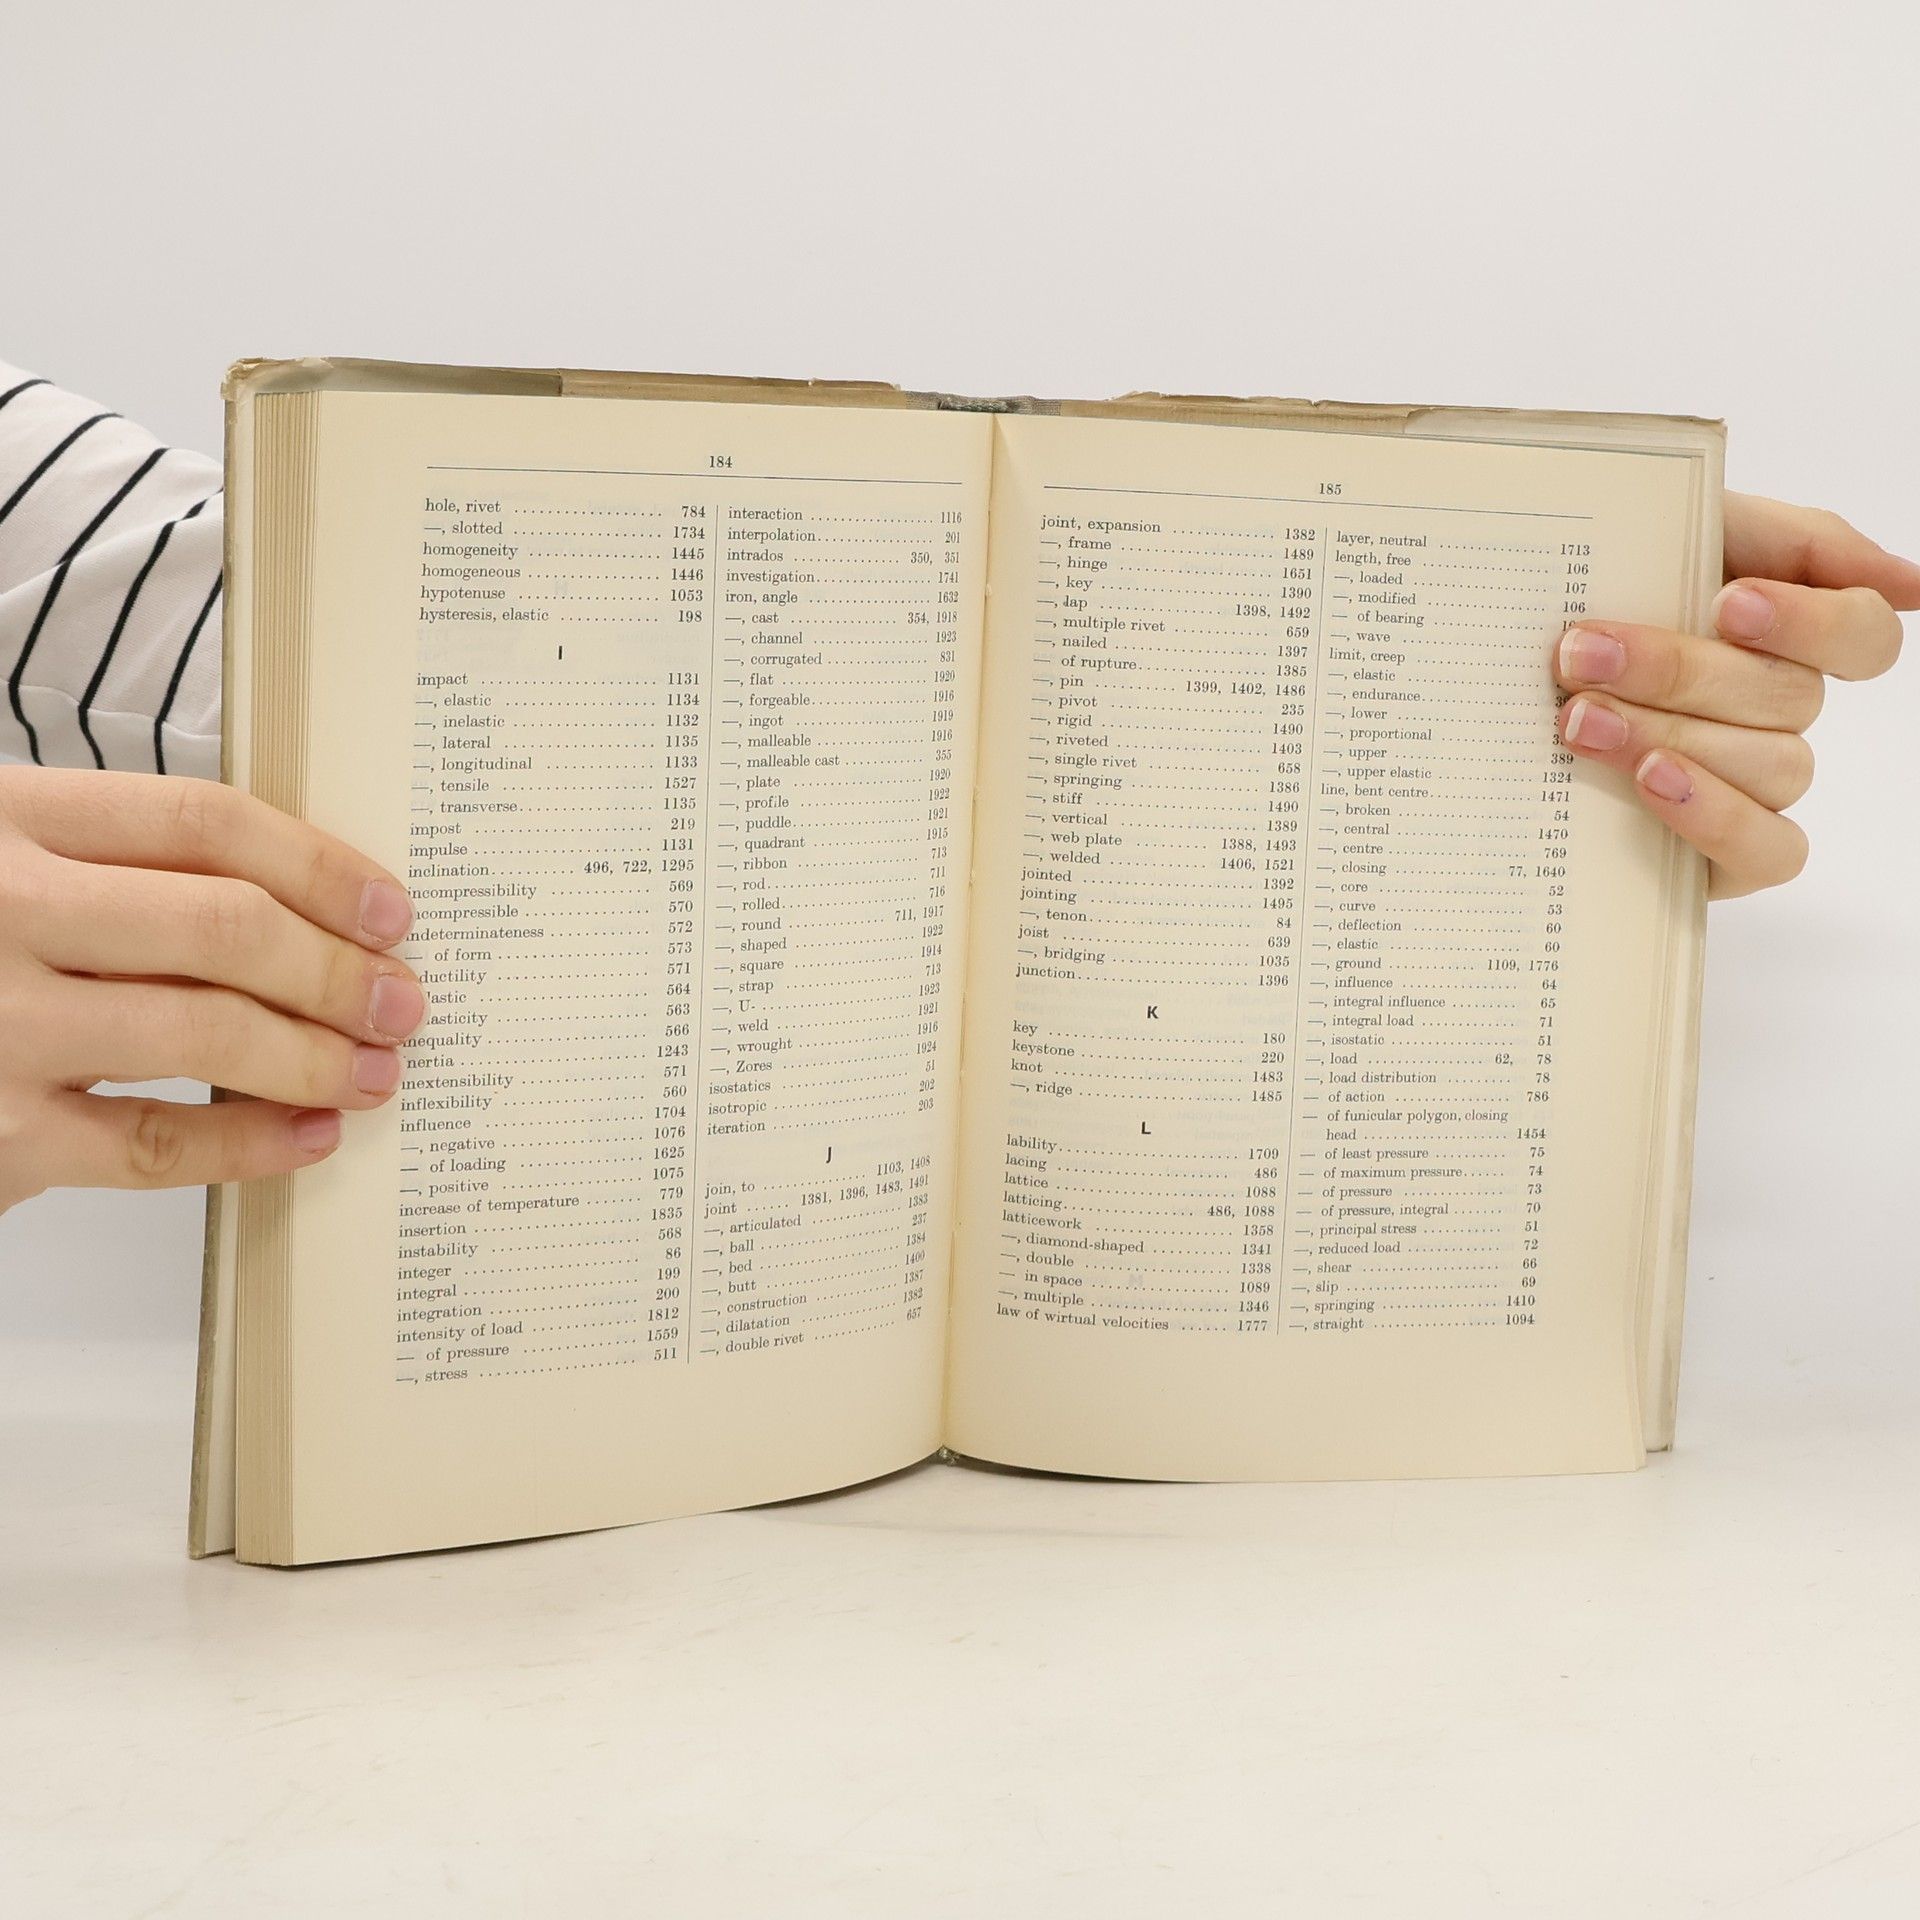 184
hole, rivet .................. 784
—, slotted .................. 1734
homogeneity .................. 1445
homogeneous .................. 1446
hypotenuse .................. 1053
hysteresis, elastic ............ 198
I
impact .................. 1131
—, elastic .................. 1134
—, inelastic .................. 1132
—, lateral .................. 1135
—, longitudinal .............. 1133
—, tensile .................. 1527
—, transverse.................. 1135
impost .................. 219
impulse .................. 1131
inclination.......... 496, 722, 1295
incompressibility .............. 569
ncompressible .............. 570
ndeterminateness ............ 572
— of form .................. 573
ductility .................. 571
lastic .................. 564
lasticity .................. 563
nequality .................. 566
nertia .................. 1243
inextensibility .................. 571
inflexibility .................. 560
influence .................. 1704
—, negative .................. 1076
— of loading .................. 1625
—, positive .................. 1075
increase of temperature ....... 779
insertion .................. 1835
instability .................. 568
integer .................. 86
integral .................. 199
integration .................. 200
intensity of load .............. 1812
— of pressure .............. 1559
—, stress .................. 511
interaction .................. 1116
interpolation.................. 201
intrados .............. 350, 351
investigation.................. 1741
iron, angle .................. 1632
—, cast .............. 354, 1918
—, channel .................. 1923
—, corrugated .............. 831
—, flat .................. 1920
—, forgeable.................. 1916
—, ingot .................. 1919
—, malleable .................. 1916
—, malleable cast .............. 355
—, plate .................. 1920
—, profile .................. 1922
—, puddle.................. 1921
—, quadrant .................. 1915
—, ribbon .................. 713
—, rod.................. 711
—, rolled.................. 716
—, round .............. 711, 1917
—, shaped .................. 1922
—, square .................. 1914
—, strap .................. 713
—, U- .................. 1923
—, weld .................. 1921
—, wrought .................. 1916
—, Zores .................. 1924
isostatics .................. 51
isotropic .................. 202
iteration .................. 203
J
join, to .............. 1103, 1408
joint ...... 1381, 1396, 1483, 1491
—, articulated .............. 1383
—, ball .................. 237
—, bed .................. 1384
—, butt .................. 1400
—, construction .............. 1387
—, dilatation .............. 1382
—, double rivet .............. 657
185
joint, expansion .............. 1382
—, frame .................. 1489
—, hinge .................. 1651
—, key .................. 1390
—, lap .............. 1398, 1492
—, multiple rivet .............. 659
—, nailed .................. 1397
— of rupture.................. 1385
—, pin .......... 1399, 1402, 1486
—, pivot .................. 235
—, rigid .................. 1490
—, riveted .................. 1403
—, single rivet .............. 658
—, springing .................. 1386
—, stiff .................. 1490
—, vertical .................. 1389
—, web plate ......... 1388, 1493
—, welded ............ 1406, 1521
jointed .................. 1392
jointing .................. 1495
—, tenon.................. 84
joist .................. 639
—, bridging .................. 1035
junction.................. 1396
K
key .................. 180
keystone .................. 220
knot .................. 1483
—, ridge .................. 1485
L
lability.................. 1709
lacing .................. 486
lattice .................. 1088
latticing.................. 486, 1088
latticework .................. 1358
—, diamond-shaped .......... 1341
—, double .................. 1338
— in space .................. 1089
—, multiple .................. 1346
law of wirtual velocities ...... 1777
layer, neutral .............. 1713
length, free .................. 106
—, loaded .................. 107
—, modified .................. 106
— of bearing ..............
—, wave ..................
limit, creep ..................
—, elastic ..................
—, endurance..................
—, lower ..................
—, proportional ..............
—, upper .................. 389
—, upper elastic .............. 1324
line, bent centre.............. 1471
—, broken .................. 54
—, central .................. 1470
—, centre .................. 769
—, closing .............. 77, 1640
—, core .................. 52
—, curve .................. 53
—, deflection .................. 60
—, elastic .................. 60
—, ground ........... 1109, 1776
—, influence .................. 64
—, integral influence ......... 65
—, integral load .............. 71
—, isostatic .................. 51
—, load .................. 62, 78
—, load distribution .......... 78
— of action .................. 786
— of funicular polygon, closing
head .................. 1454
— of least pressure ............ 75
— of maximum pressure...... 74
— of pressure .............. 73
— of pressure, integral ....... 70
—, principal stress ............ 51
—, reduced load .............. 72
—, shear .................. 66
—, slip .................. 69
—, springing .................. 1410
—, straight .................. 1094